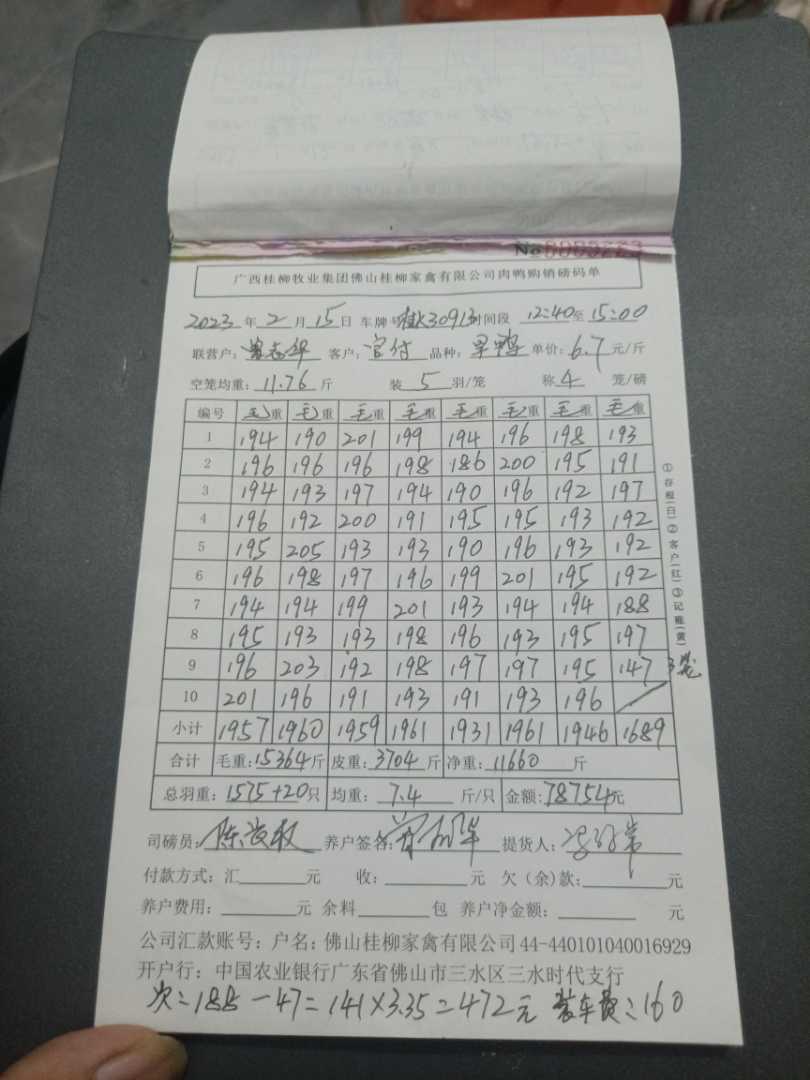 No 0005223
广西桂柳牧业集团佛山桂柳家禽有限公司肉鸭购销磅码单
2023年2月15日 车牌号 30913 时间段 12:40至15:00
联营户: 客户: 官付 品种: 鸭 单价: 6.7元/斤
空笼均重: 11.76斤 装 5 羽/笼 称 4 笼/磅
编号 毛重 毛重 毛重 毛重 毛重 毛重 毛重 毛重
1 194 190 201 199 194 196 198 193
2 196 196 196 198 186 200 195 191
3 194 193 197 194 190 196 192 197
4 196 192 200 191 195 195 193 192
5 195 205 193 193 190 196 193 192
6 196 198 197 196 199 201 195 192
7 194 194 199 201 193 194 194 188
8 195 193 193 198 196 193 195 197
9 196 203 192 198 197 197 195 147 3笼
10 201 196 191 193 191 193 196
小计 1957 1960 1959 1961 1931 1961 1946 1689
合计 毛重: 15364斤 皮重: 3704斤 净重: 11660斤
总羽重: 1575+20只 均重: 7.4斤/只 金额: 78754元
司磅员: 养户签名: 提货人:
付款方式: 汇 元 收: 元 欠(余)款: 元
养户费用: 元 余料 包 养户净金额: 元
公司汇款账号: 户名: 佛山桂柳家禽有限公司 44-440101040016929
开户行: 中国农业银行广东省佛山市三水区三水时代支行
次=188-47=141×3.35=472元 装车费=160
①存根(白)②客户(红)③记账(黄)